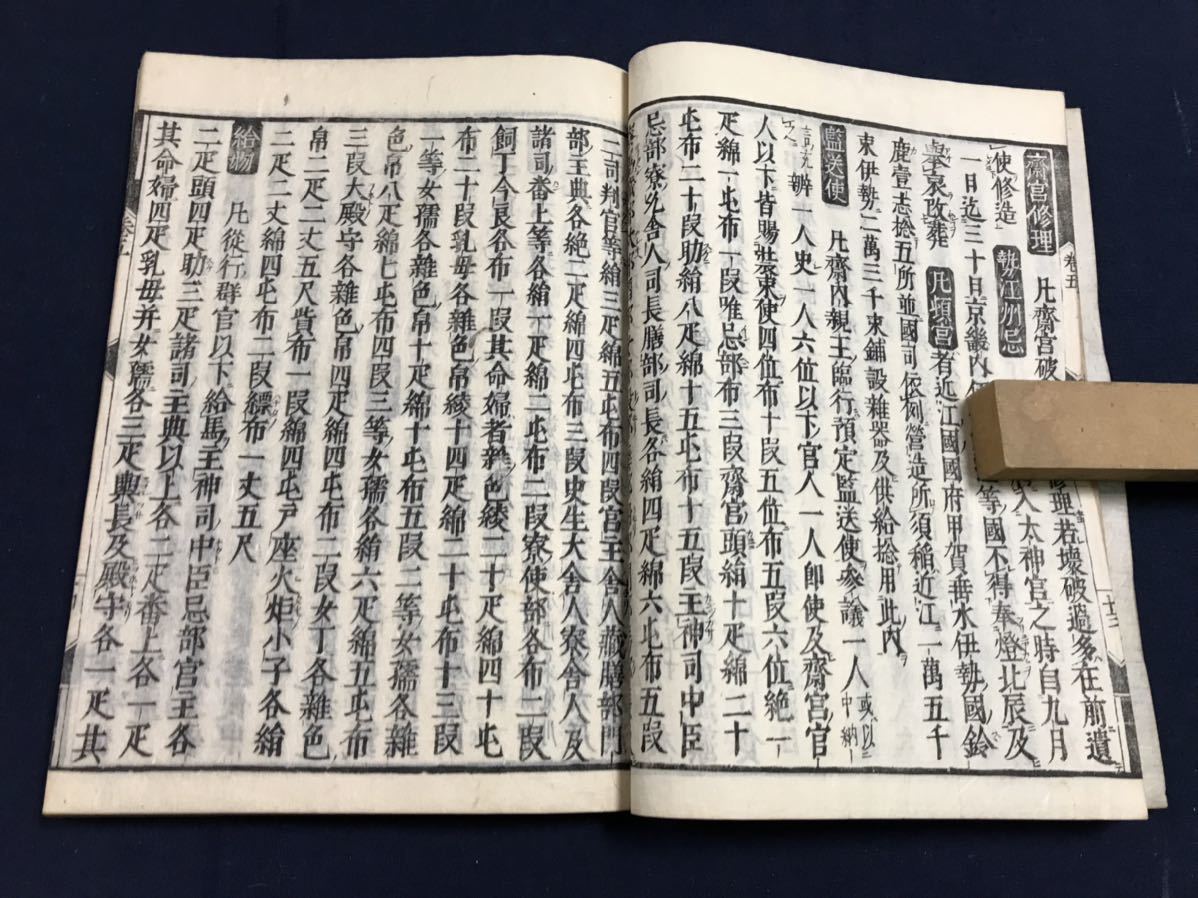 卷五
齋宮修理 凡齋宮破 修理若壞破過多在前遣
使修造 勢江州忌 入太神宮之時自九月
一日迄三十日京畿內 等國不得奉燈北辰及
擧哀改葬 凡頓宮者近江國國府甲賀垂水伊勢國鈴
鹿壹志捴五所並國司依例營造所須稻近江一萬五千
束伊勢二萬三千束鋪設雜器及供給捴用此內
監送使 凡齋內親王臨行預定監送使參議一人或以中納
言充辨一人史一人六位以下官人一人即使及齋宮官
人以下皆賜裝束使四位布十段五位布五段六位絁一
疋綿一屯布一段唯忌部布三段齋宮頭絹十疋綿二十
屯布二十段助絹八疋綿十五屯布十五段主神司中臣
忌部寮允舍人司長膳部司長各絹四疋綿六屯布五段
二司判官等絹三疋綿五屯布四段宮主舍人藏膳部門
部主典各絁二疋綿四屯布三段史生大舍人寮舍人及
諸司番上等各絹一疋綿二屯布二段寮使部各布二段
飼丁今良各布一段其命婦者雜色綾二十疋綿四十屯
布二十段乳母各雜色帛綾十四疋綿二十屯布十三段
一等女孺各雜色帛十疋綿十屯布五段二等女孺各雜
色帛八疋綿七屯布四段三等女孺各絹六疋綿五屯布
三段大殿守各雜色帛四疋綿四屯布二段女丁各雜色
帛二疋二丈五尺貲布一段綿四屯戶座火炬小子各絹
二疋二丈綿四屯布二段縹布一丈五尺
給物 凡從行群官以下給馬主神司中臣忌部宮主各
二疋頭四疋助三疋諸司主典以上各二疋番上各一疋
其命婦四疋乳母并女孺各三疋輿長及殿守各一疋其